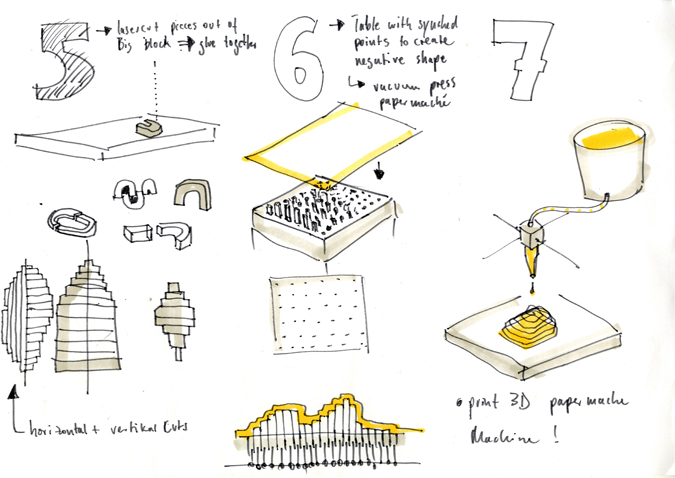 5
→ lasercut pieces out of
Big block ⇒ glue together
horizontal + vertikal cuts
6
→ Table with synched
points to create
negative shape
↳ vacuum press
papermaché
7
• print 3D papermache
Machine !